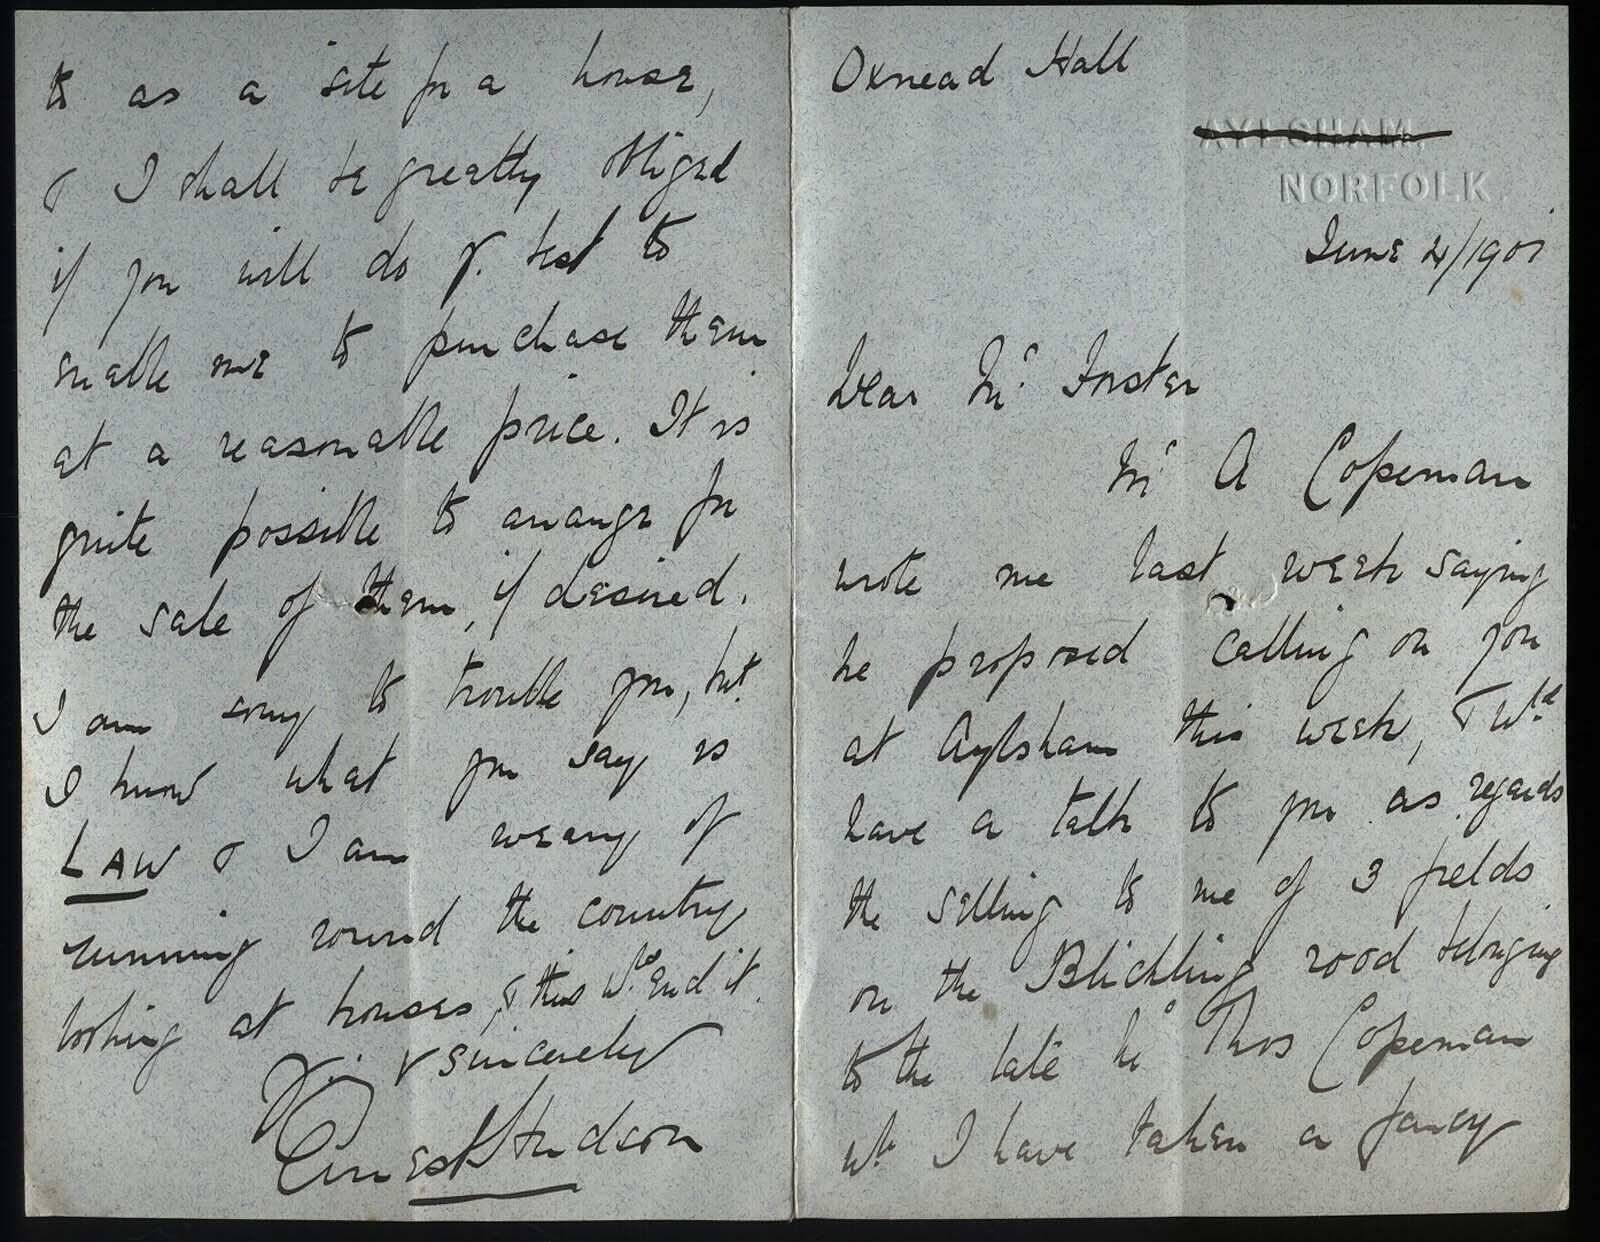 Oxnead Hall
AYLSHAM,
NORFOLK.
June 4/1901
Dear Mr Forster
Mr A Copeman
wrote me last week saying
he proposed calling on you
at Aylsham this week, & wld
have a talk to you as regards
the selling to me of 3 fields
on the Blickling road belonging
to the late Mr Thos Copeman
wh I have taken a fancy
to as a site for a house,
& I shall be greatly obliged
if you will do yr. best to
enable me to purchase them
at a reasonable price. It is
quite possible to arrange for
the sale of them, if desired.
I am sorry to trouble you, but
I know what you say is
LAW & I am weary of
running round the country
looking at houses, & this wld end it.
Yrs. v sincerely
Ernest Hudson